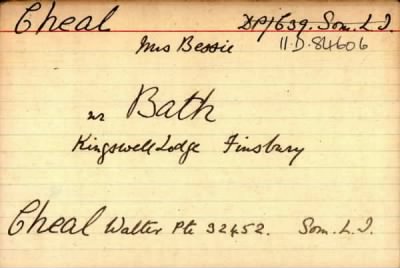 Cheal DP/639. Som. L.I.
Mrs Bessie 11.D.84606
nr Bath
Kingswell Lodge Finsbury
Cheal Walter Pte 32452. Som. L.I.